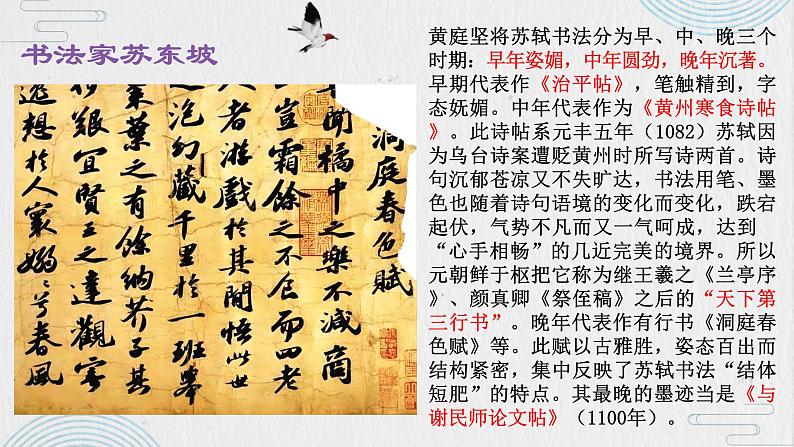 书法家苏东坡
洞庭春色賦
聞橘中之樂不減商
豈霜餘之不食而四老
人者遊戲於其間悟此世
泡幻藏千里於一班舉
棗葉之有餘納芥子其
艱宜賢王之達觀寄
逸想於人寰嫋〻兮春風
黄庭坚将苏轼书法分为早、中、晚三个
时期：早年姿媚，中年圆劲，晚年沉著。
早期代表作《治平帖》，笔触精到，字
态妩媚。中年代表作为《黄州寒食诗帖
》。此诗帖系元丰五年（1082）苏轼因
为乌台诗案遭贬黄州时所写诗两首。诗
句沉郁苍凉又不失旷达，书法用笔、墨
色也随着诗句语境的变化而变化，跌宕
起伏，气势不凡而又一气呵成，达到
“心手相畅”的几近完美的境界。所以
元朝鲜于枢把它称为继王羲之《兰亭序
》、颜真卿《祭侄稿》之后的“天下第
三行书”。晚年代表作有行书《洞庭春
色赋》等。此赋以古雅胜，姿态百出而
结构紧密，集中反映了苏轼书法“结体
短肥”的特点。其最晚的墨迹当是《与
谢民师论文帖》（1100年）。